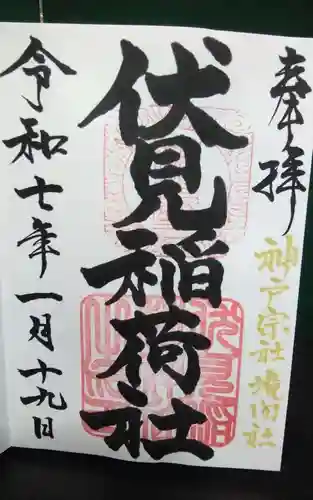 奉拝
神戸宗社境内社
伏見稲荷社
令和七年一月十九日